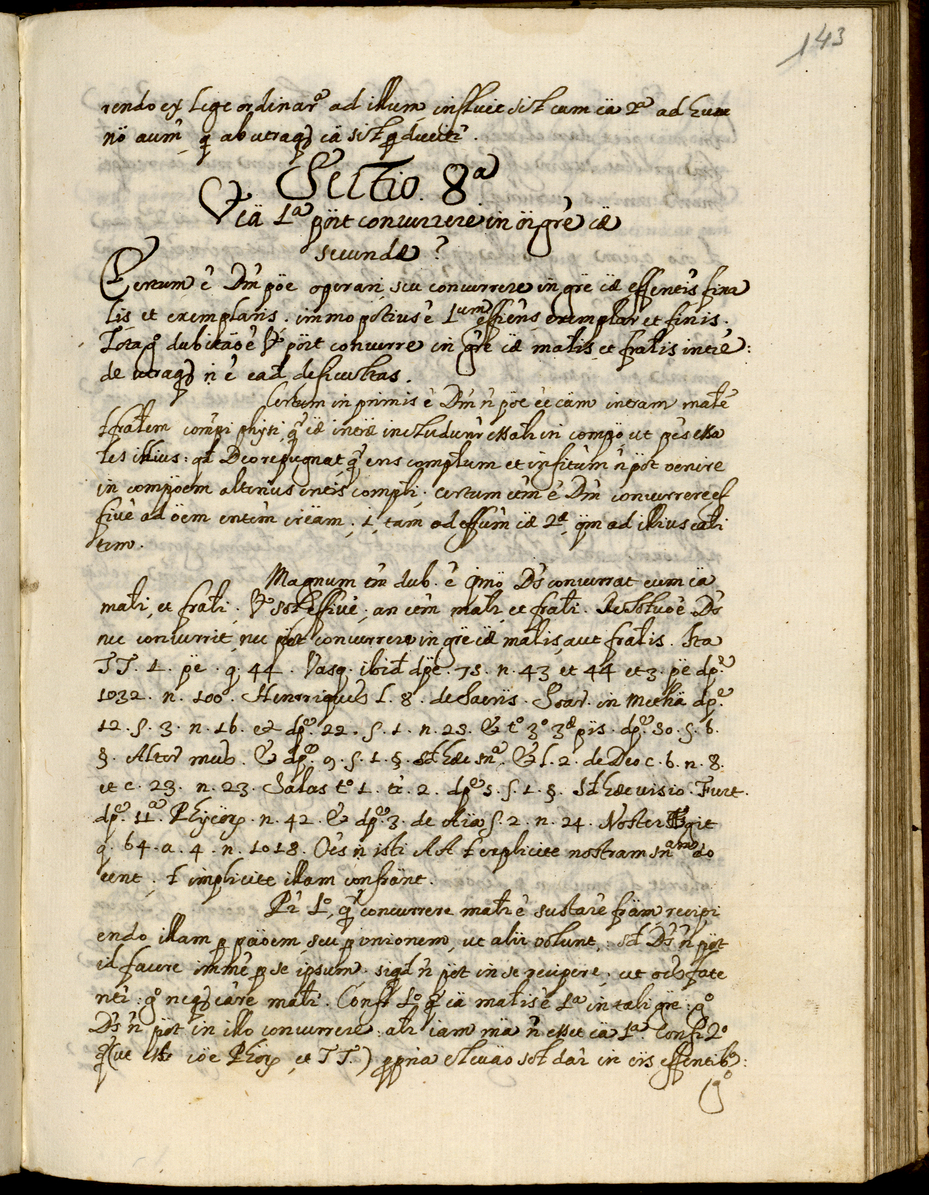 143
rendo ex lege ordinarª ad illum influit sit cum cä 2ª ad hunc
nö aum̃, q̃ ab utraq; cä sit q̃
Sectio 8ª
cä 1ª põit concurrere in õi gr̃e cæ
secundæ?
Certum ẽ Dm̃ põe operari, seu concurrere in gr̃e cæ effentis fina
lis et exemplaris. immo potius ẽ 1um effiens exemplar et finis.
Tota q̃ dubitãõ ẽ põit concurre in gr̃e cæ matlis et fratlis intrẽ:
de utraq; ñ ẽ ead defficultas.
Certum in primis ẽ Dm̃ ñ põe ẽe cãm intram matẽ
ł fratlem comp̃i physi, q̃ cæ intræ includunr̃ essalr in compõ ut p̃es essa
les illius: qd Deo repugnat q̃ ens compltum et infitum ñ põt venire
in compöem alterius entis compli. certum etm̃ ẽ Dm̃ concurrere ef
fivẽ ad öem entem creäm. i. tam ad effum cæ 2æ, q̃m ad illius cali
tem.
Magnum tm̃ dub. ẽ q̃mö Ds concurrat cum cä
matli, et fratli. sol effivẽ, an etm̃ matlr et fratlr. Resolvo ẽ Ds
nec concurrit, nec põt concurrere in gr̃e cæ matlis aut fratlis. Ita
TT. 1. pẽ. q. 44. Vasq. ibid dpẽ. 75. n. 43 et 44 et 3. pẽ dpẽ
1032. n. 100. Henrriques l. 8. de Sacris. Soar. in Metha dpẽ
12. s. 3. n. 16. et dpẽ. 22. s. 1. n. 23. & tº 3º 3æ pis. dpẽ. 30. s. 6.
§. Altor mub. & dpẽ. 9. s. 1. §. sd hæc snª. & l. 2. de Deo c. 6. n. 8.
et c. 23. n. 23. Salas tº 1. tr. 2. dpẽ 5. s. 1. §. Sd hæc visio. Furt.
dpẽ. 11ª. Physcorum. n. 42. & dpẽ 3. de Aïa s. 2. n. 24. Noster git
q. 64. a. 4. n. 1018. Oẽs ñ isti AA ł explicite nostram snam do
cent, ł implicite illam confir̃ant.
Pr̃ 1º, q̃ concurrere matlr ẽ sustarẽ fr̃am recipi
endo illam p paöem, seu p unionem, ut alii volunt, sd Ds ñ põt
id facere immẽ p se ipsum. siqd ñ põt in se recipere, ut oẽs fate
ntr: gº neq; carẽ matlr. Confr 1º q̃ cä matlis ẽ 1ª in tali gr̃e: gº
Ds ñ põt in illo concurrere. alr̃ iam mä ñ esset cä 1ª. Confr 2º
q̃ (ut cöe Phorum et TT.) ppria elevaö sol dar̃ in cis effentibs:
gº